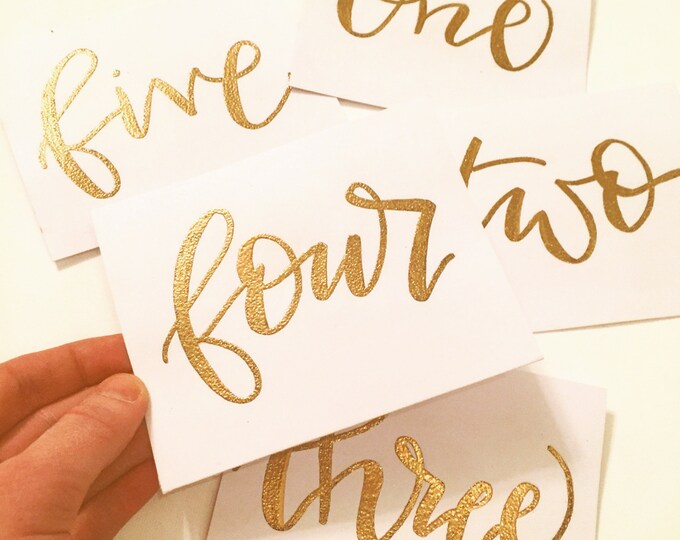 one
five
two
four
three